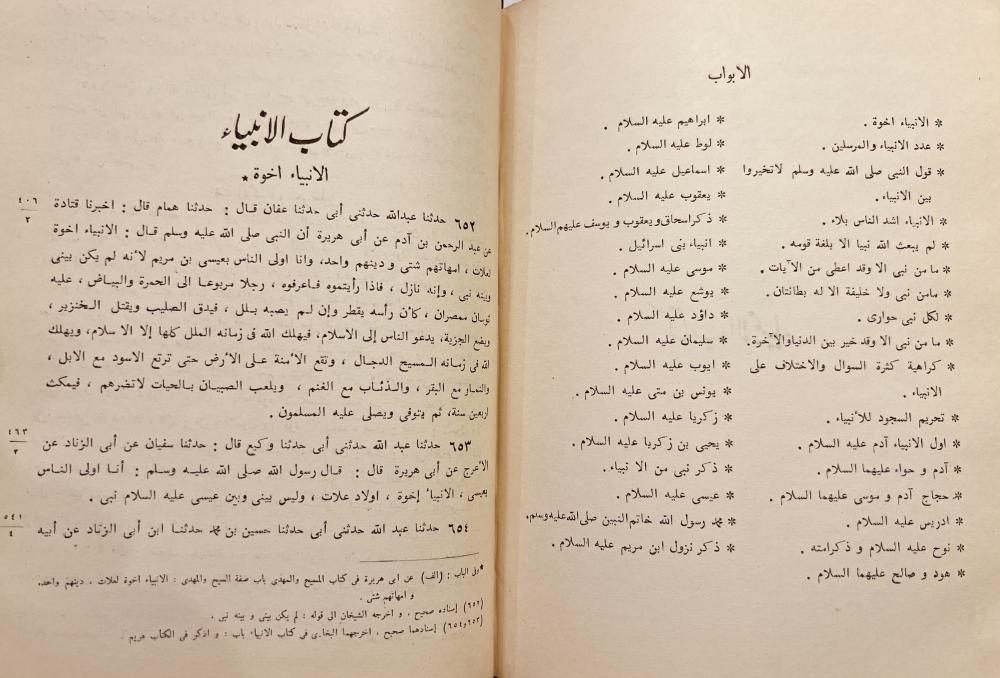 الابواب
* الانبياء اخوة .
* عدد الانبياء والمرسلين .
* قول النبى صلى الله عليه وسلم لاتخيروا
بين الانبياء.
* الانبياء اشد الناس بلاء .
* لم يبعث الله نبيا الا بلغة قومه .
* ما من نبى الا وقد اعطى من الآيات .
* مامن نبى ولا خليفة الا له بطانتان.
* لكل نبى حوارى .
* ما من نبى الا وقد خير بين الدنياوالآخرة.
* كراهية كثرة السوال والاختلاف على
الانبياء .
* تحريم السجود للأنبياء .
* اول الانبياء آدم عليه السلام .
* آدم و حواء عليهما السلام .
* حجاج آدم و موسى عليهما السلام .
* ادريس عليه السلام .
* نوح عليه السلام و ذكرامته .
* هود و صالح عليهما السلام .
* ابراهيم عليه السلام .
* لوط عليه السلام .
* اسماعيل عليه السلام .
* يعقوب عليه السلام .
* ذكر اسحاق ويعقوب و يوسف عليهم السلام.
* انبياء بنى اسرائيل .
* موسى عليه السلام .
* يوشع عليه السلام .
* داؤد عليه السلام .
* سليمان عليه السلام .
* ايوب عليه السلام .
* يونس بن متى عليه السلام .
* زكريا عليه السلام .
* يحيى بن زكريا عليه السلام .
* ذكر نبى من الا نبياء.
* عيسى عليه السلام .
* محمد رسول الله خاتم النبين صلى الله عليه وسلم.
* ذكر نزول ابن مريم عليه السلام .
كتاب الانبياء
الانبياء اخوة *
٦٥٢ حدثنا عبدالله حدثنى أبى حدثنا عفان قال : حدثنا همام قال : اخبرنا قتادة ٤٠٦/٢
عن عبد الرحمن بن آدم عن أبى هريرة أن النبى صلى الله عليه وسلم قال : الأنبياء اخوة
لعلات ، امهاتهم شتى و دينهم واحد، وانا اولى الناس بعيسى بن مريم لأنه لم يكن بينى
وبينه نبى ، وإنه نازل ، فاذا رأيتموه فاعرفوه ، رجلا مربوعا الى الحمرة والبياض ، عليه
ثوبان ممصران ، كأن رأسه يقطر وإن لم يصبه بلل ، فيدق الصليب ويقتل الخنزير ،
ويضع الجزية، يدعو الناس إلى الاسلام، فيهلك الله فى زمانه الملل كلها إلا الا سلام، ويهلك
الله فى زمانه المسيح الدجال ، وتقع الأمنة على الأرض حتى ترتع الاسود مع الابل ،
والنمار مع البقر ، والذئاب مع الغنم ، ويلعب الصبيان بالحيات لاتضرهم ، فيمكث
اربعين سنة، ثم يتوفى ويصلى عليه المسلمون .
٦٥٣ حدثنا عبد الله حدثنى أبى حدثنا وكيع قال : حدثنا سفيان عن أبى الزناد عن ٤٦٣/٢
الأعرج عن أبى هريرة قال : قال رسول الله صلى الله عليه وسلم : أنا اولى الناس
بعيسى ، الانبياء إخوة ، اولاد علات ، وليس بينى وبين عيسى عليه السلام نبى .
٦٥٤ حدثنا عبد الله حدثنى أبى حدثنا حسين بن محمد حدثنا ابن أبى الزناد عن أبيه ٥٤١/٤
* وفى الباب : (الف) عن ابى هريرة فى كتاب المسيح والمهدى باب صفة المسيح والمهدى : الانبياء اخوة لعلات ، دينهم واحد،
و امهاتهم شتى .
(٦٥٢) إسناده صحيح ، و اخرجه الشيخان الى قوله : لم يكن بينى و بينه نبى .
(٦٥٣و٦٥٤) إسنادهما صحيح . اخرجهما البخارى فى كتاب الانبياء باب : و اذكر فى الكتاب مريم .